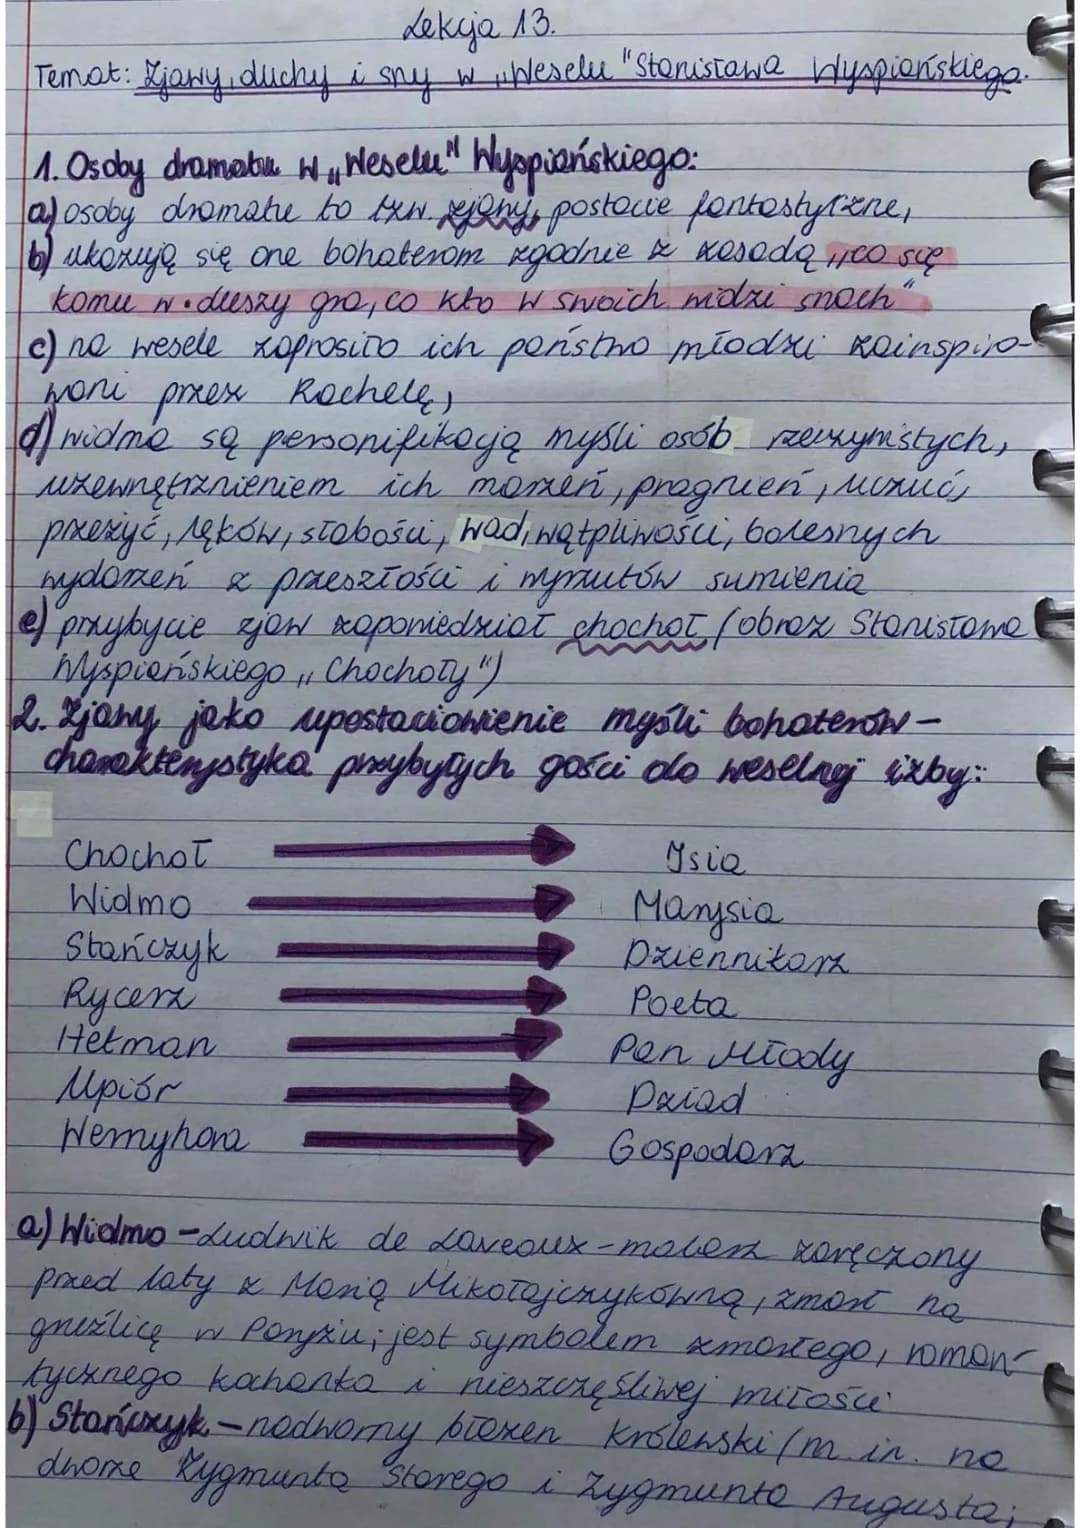 Lekcja 13.
Temat: Zjawy, duchy i sny w „Weselu" Stanisława Wyspiańskiego.
1. Osoby dramatu w „Weselu" Wyspiańskiego:
a) osoby dramatu to tzw. zjawy, postacie fantastyczne,
b) ukazują się one bohaterom zgodnie z zasadą „co się
komu w duszy gra, co kto w swoich widzi snach"
c) na wesele zaprosiło ich państwo młodzi zainspiro-
wani przez Rachelę,
d) widma są personifikacją myśli osób rzeczywistych,
uzewnętrznieniem ich marzeń, pragnień, uczuć,
przeżyć, lęków, słabości, wad, wątpliwości, bolesnych
wydarzeń z przeszłości i wyrzutów sumienia
e) przybycie zjaw zapowiedział chochoł (obraz Stanisława
Wyspiańskiego „Chochoły")
2. Zjawy jako upostaciowienie myśli bohaterów -
charakterystyka przybyłych gości do weselnej izby:
Chochoł Isia
Widmo Marysia
Stańczyk Dziennikarz
Rycerz Poeta
Hetman Pan Młody
Upiór Dziad
Wernyhora Gospodarz
a) Widmo - Ludwik de Laveaux - malarz zaręczony
przed laty z Marią Mikołajczykówną, zmarł na
gruźlicę w Paryżu; jest symbolem zmarłego, roman-
tycznego kochanka i nieszczęśliwej miłości
b) Stańczyk - nadworny błazen królewski (m.in. na
dworze Zygmunta Starego i Zygmunta Augusta;